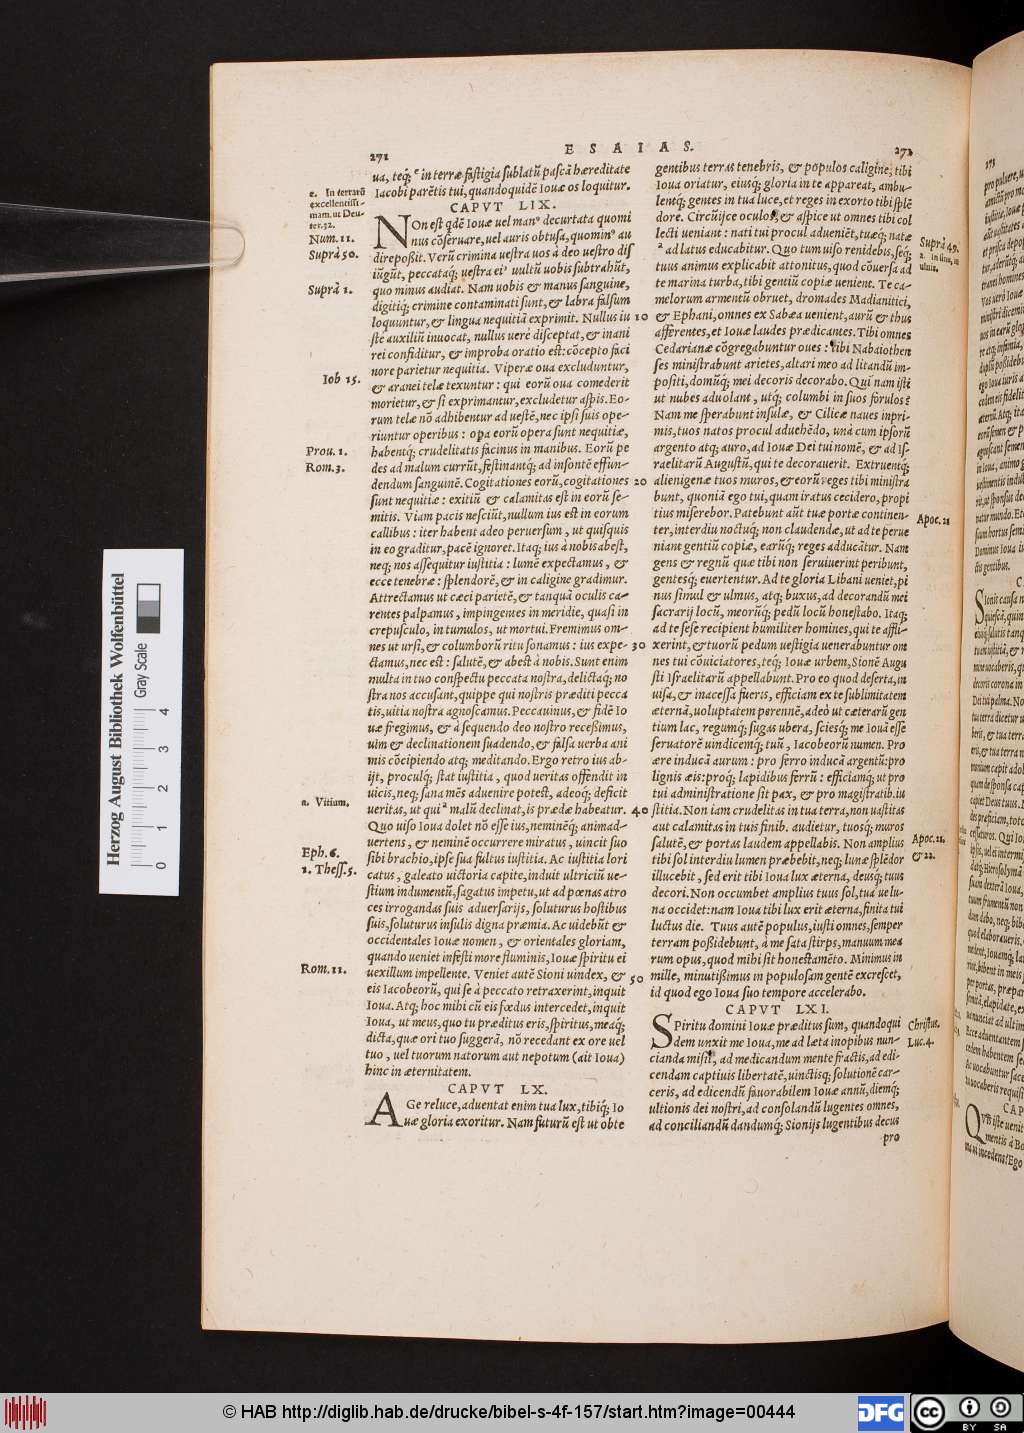 E S A I A S.
271
ua, teq́; e in terræ fastigia sublatũ pascã hæreditate
Iacobi parẽtis tui, quandoquidẽ Ioua os loquitur.
CAPVT LIX.
NOn est qdẽ Iouæ uel manꝰ decurtata quomi
nus cõseruare, uel auris obtusa, quominꝰ au
dire possit. Verũ crimina uestra uos à deo uestro dis
iũgũt, peccataq́; uestra eiꝰ uultũ uobis subtrahũt,
quo minus audiat. Nam uobis & manus sanguine,
digitiq́; crimine contaminati sunt, & labra falsum
loquuntur, & lingua nequitiã exprimit. Nullus iu
stè auxiliũ inuocat, nullus uerè disceptat, & inani
rei confiditur, & improba oratio est: cõcepto faci
nore parietur nequitia. Viperæ oua excluduntur,
& aranei telæ texuntur: qui eorũ oua comederit
morietur, & si exprimantur, excludetur aspis. Eo-
rum telæ nõ adhibentur ad uestẽ, nec ipsi suis ope-
riuntur operibus: opa eorũ opera sunt nequitiæ,
habentq́; crudelitatis facinus in manibus. Eorũ pe
des ad malum currũt, festinantq́; ad insontẽ effun-
dendum sanguinẽ. Cogitationes eorũ, cogitationes
sunt nequitiæ: exitiũ & calamitas est in eorũ se-
mitis. Viam pacis nesciũt, nullum ius est in eorum
callibus: iter habent adeo peruersum, ut quisquis
in eo graditur, pacẽ ignoret. Itaq; ius à nobis abest,
neq; nos assequitur iustitia: lumẽ expectamus, &
ecce tenebræ: splendorẽ, & in caligine gradimur.
Attrectamus ut cæci parietẽ, & tanquã oculis ca-
rentes palpamus, impingentes in meridie, quasi in
crepusculo, in tumulos, ut mortui. Fremimus om-
nes ut ursi, & columborũ ritu sonamus: ius expe-
ctamus, nec est: salutẽ, & abest à nobis. Sunt enim
multa in tuo conspectu peccata nostra, delictaq́; no
stra nos accusant, quippe qui nostris præditi pecca
tis, uitia nostra agnoscamus. Peccauimus, & fidẽ Io
uæ fregimus, & à sequendo deo nostro recessimus,
uim & declinationem suadendo, & falsa uerba ani
mis cõcipiendo atq; meditando. Ergo retro ius ab-
ijt, proculq́; stat iustitia, quod ueritas offendit in
uicis, neq; sana mẽs aduenire potest, adeoq́; deficit
ueritas, ut qui a malũ declinat, is prædæ habeatur.
Quo uiso Ioua dolet nõ esse ius, neminẽq́; animad-
uertens, & neminẽ occurrere miratus, uincit suo
sibi brachio, ipse sua fultus iustitia. Ac iustitia lori
catus, galeato uictoria capite, induit ultriciũ ue-
stium indumentũ, sagatus impetu, ut ad pœnas atro
ces irrogandas suis aduersarijs, soluturus hostibus
suis, soluturus insulis digna præmia. Ac uidebũt &
occidentales Iouæ nomen, & orientales gloriam,
quando ueniet infesti more fluminis, Iouæ spiritu ei
uexillum impellente. Veniet autẽ Sioni uindex, &
eis Iacobeorũ, qui se à peccato retraxerint, inquit
Ioua. Atq; hoc mihi cũ eis fœdus intercedet, inquit
Ioua, ut meus, quo tu præditus eris, spiritus, meaq́;
dicta, quæ ori tuo suggerã, nõ recedant ex ore uel
tuo, uel tuorum natorum aut nepotum (ait Ioua)
hinc in æternitatem.
CAPVT LX.
AGe reluce, aduentat enim tua lux, tibiq́; Io
uæ gloria exoritur. Nam futurũ est ut obte
e. In terrarũ
excellentissi-
mam. ut Deu-
ter. 32.
Num. 11.
Suprà 50.
Suprà 1.
Iob 15.
Prou. 1.
Rom. 3.
a. Vitium.
Eph. 6.
1. Thess. 5.
Rom. 11.
10
20
30
40
50
272
gentibus terras tenebris, & populos caligine, tibi
Ioua oriatur, eiusq́; gloria in te appareat, ambu-
lentq́; gentes in tua luce, et reges in exorto tibi splẽ
dore. Circũijce oculos, & aspice ut omnes tibi col
lecti ueniant: nati tui procul adueniẽt, tuæq́; natæ
a ad latus educabitur. Quo tum uiso renidebis, seq́;
tuus animus explicabit attonitus, quod cõuersa ad
te marina turba, tibi gentiũ copiæ uenient. Te ca-
melorum armentũ obruet, dromades Madianitici,
& Ephani, omnes ex Sabæa uenient, aurũ & thus
afferentes, et Iouæ laudes prædicantes. Tibi omnes
Cedarianæ cõgregabuntur oues: tibi Nabaiothen
ses ministrabunt arietes, altari meo ad litandũ im-
positi, domũq́; mei decoris decorabo. Qui nam isti
ut nubes aduolant, utq́; columbi in suos forulos?
Nam me sperabunt insulæ, & Ciliciæ naues inpri-
mis, tuos natos procul aduehẽdo, unà cum ipsorũ
argento atq; auro, ad Iouæ Dei tui nomẽ, & ad Is-
raelitarũ Augustũ, qui te decorauerit. Extruentq́;
alienigenæ tuos muros, & eorũ reges tibi ministra
bunt, quoniã ego tui, quam iratus cecidero, propi
tius miserebor. Patebunt aũt tuæ portæ continen-
ter, interdiu noctuq́; non claudendæ, ut ad te perue
niant gentiũ copiæ, earũq́; reges adducãtur. Nam
gens & regnũ quæ tibi non seruiuerint peribunt,
gentesq́; euertentur. Ad te gloria Libani ueniet, pi
nus simul & ulmus, atq; buxus, ad decorandũ mei
sacrarij locũ, meorũq́; pedũ locũ honestabo. Itaq;
ad te sese recipient humiliter homines, qui te affli-
xerint, & tuorũ pedum uestigia uenerabuntur om
nes tui cõuiciatores, teq́; Iouæ urbem, Sionẽ Augu
sti Israelitarũ appellabunt. Pro eo quod deserta, in
uisa, & inaccessa fueris, efficiam ex te sublimitatem
æternã, uoluptatem perennẽ, adeò ut cæterarũ gen
tium lac, regumq́; sugas ubera, sciesq́; me Iouã esse
seruatorẽ uindicemq́; tuũ, Iacobeorũ numen. Pro
ære inducã aurum: pro ferro inducã argentũ: pro
lignis æs: proq́; lapidibus ferrũ: efficiamq́; ut pro
tui administratione sit pax, & pro magistratib. iu
stitia. Non iam crudelitas in tua terra, non uastitas
aut calamitas in tuis finib. audietur, tuosq́; muros
salutẽ, & portas laudem appellabis. Non amplius
tibi sol interdiu lumen præbebit, neq; lunæ splẽdor
illucebit, sed erit tibi Ioua lux æterna, deusq́; tuus
decori. Non occumbet amplius tuus sol, tua ue lu-
na occidet: nam Ioua tibi lux erit æterna, finita tui
luctus die. Tuus autẽ populus, iusti omnes, semper
terram possidebunt, à me sata stirps, manuum mea
rum opus, quod mihi sit honestamẽto. Minimus in
mille, minutissimus in populosam gentẽ excrescet,
id quod ego Ioua suo tempore accelerabo.
CAPVT LXI.
SPiritu domini Iouæ præditus sum, quandoqui
dem unxit me Ioua, me ad læta inopibus nun-
cianda misit, ad medicandum mente fractis, ad edi-
cendam captiuis libertatẽ, uinctisq́; solutionẽ car-
ceris, ad edicendũ fauorabilem Iouæ annũ, diemq́;
ultionis dei nostri, ad consolandũ lugentes omnes,
ad conciliandũ dandumq́; Sionijs lugentibus decus
pro
Suprà 49.
Apoc. 21
Apoc. 21.
& 22.
Christus.
Luc. 4.
273
Herzog August Bibliothek Wolfenbüttel
Gray Scale
0 1 2 3 4
© HAB http://diglib.hab.de/drucke/bibel-s-4f-157/start.htm?image=00444
DFG
cc
BY SA